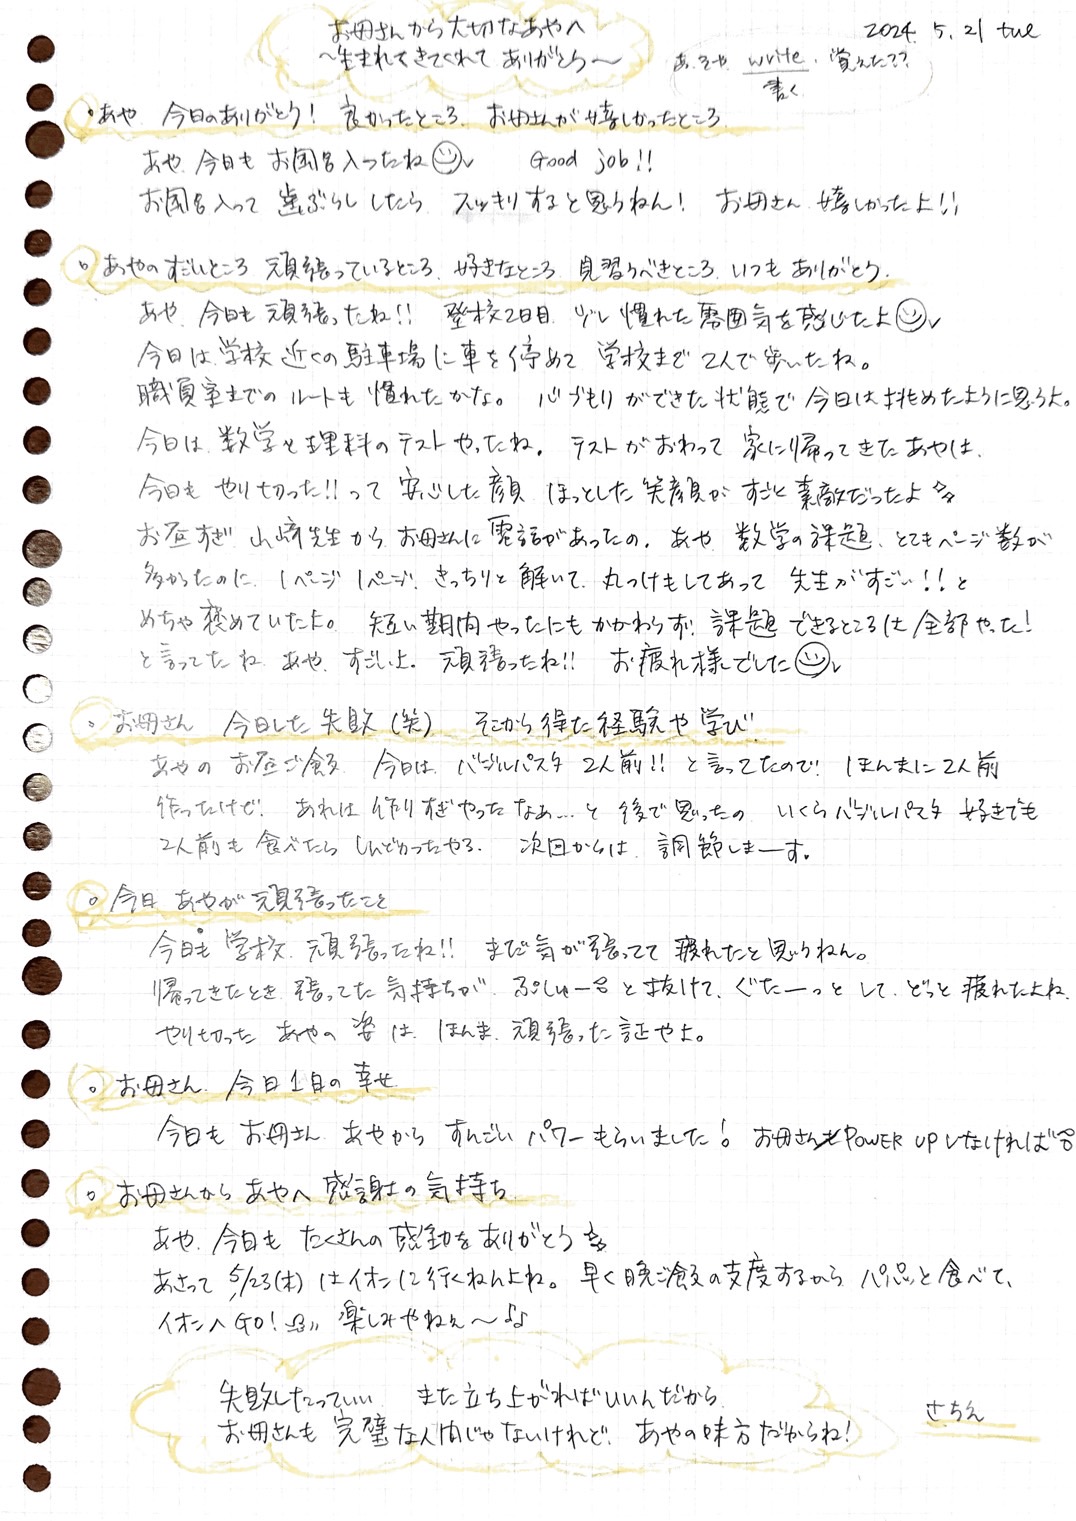 お母さんから大切なあやへ
〜生まれてきてくれて ありがとう〜
2024. 5. 21 tue
あ、そや write. 覚えた??
書く
・あや 今日のありがとう! 良かったところ. お母さんが嬉しかったところ
あや 今日も お風呂 入ったね Good job!!
お風呂 入って 歯ぶらし したら スッキリすると思うねん! お母さん 嬉しかったよ!!
。あやの すごいところ 頑張っているところ. 好きなところ 見習うべきところ. いつも ありがとう.
あや. 今日も 頑張ったね!! 登校2日目 少し 慣れた 雰囲気を 感じたよ
今日は 学校 近くの 駐車場に 車を 停めて 学校まで 2人で 歩いたね。
職員室までの ルートも 慣れたかな。 心づもりができた 状態で 今日は 挑めたように思うよ。
今日は 数学と 理科の テストやったね. テストが おわって 家に帰ってきた あやは.
今日も やり切った!!って 安心した 顔 ほっとした 笑顔が すごく 素敵だったよ
お昼すぎ 山﨑先生から お母さんに 電話があったの. あや 数学の課題、とてもページ数が
多かったのに、1ページ1ページ. きっちりと 解いて、丸つけもしてあって 先生がすごい!!と
めちゃ 褒めていたよ。 短い期間内 やったにもかかわらず! 課題 できるところは 全部やった!
と言ってたね あや. すごいよ. 頑張ったね!! お疲れ様でした
。お母さん 今日した 失敗(笑) そこから得た経験や学び
あやの お昼ご飯 今日は. バジルパスタ 2人前!! と言ってたので! ほんまに 2人前
作ったけど. あれは 作りすぎやったなあ...と 後で思ったの いくらバジルパスタ 好きでも
2人前も 食べたら しんどかったやろ. 次回からは. 調節しまーす。
。今日 あやが 頑張ったこと
今日も 学校 頑張ったね!! まだ 気が張ってて 疲れたと思うねん。
帰ってきたとき 張ってた 気持ちが. ぷしゅー と抜けて、ぐたーっと して. どっと 疲れたよね.
やり切った あやの 姿 は. ほんま. 頑張った 証やよ。
。お母さん. 今日1日の 幸せ
今日も お母さん あやから すんごい パワー もらいました! お母さんも POWER UPしなければ
。お母さんから あやへ 感謝の気持ち
あや. 今日も たくさんの 感動を ありがとう
あさって 5/23(木) はイオンに行くねんよね。早く晩ご飯の支度するから パパッと食べて、
イオンへ GO! 楽しみやねぇ〜♪
失敗したっていい また立ち上がればいいんだから
お母さんも 完璧な人間じゃないけれど. あやの味方だからね!
さちえ